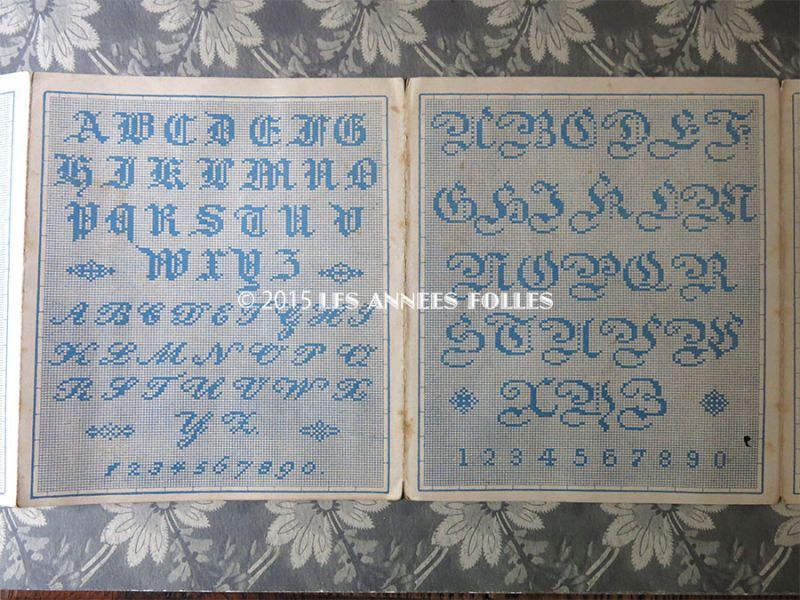 A B C D E F G
H I K L M N O
P Q R S T U V
W X Y Z
© 2015 LES ANNEES FOLLES
A B C D E F G H I
K L M N O P Q
R S T U V W X
Y Z
1 2 3 4 5 6 7 8 9 0.
A B C D E F
G H I K L M
N O P Q R
S T U V W
X Y Z
1 2 3 4 5 6 7 8 9 0